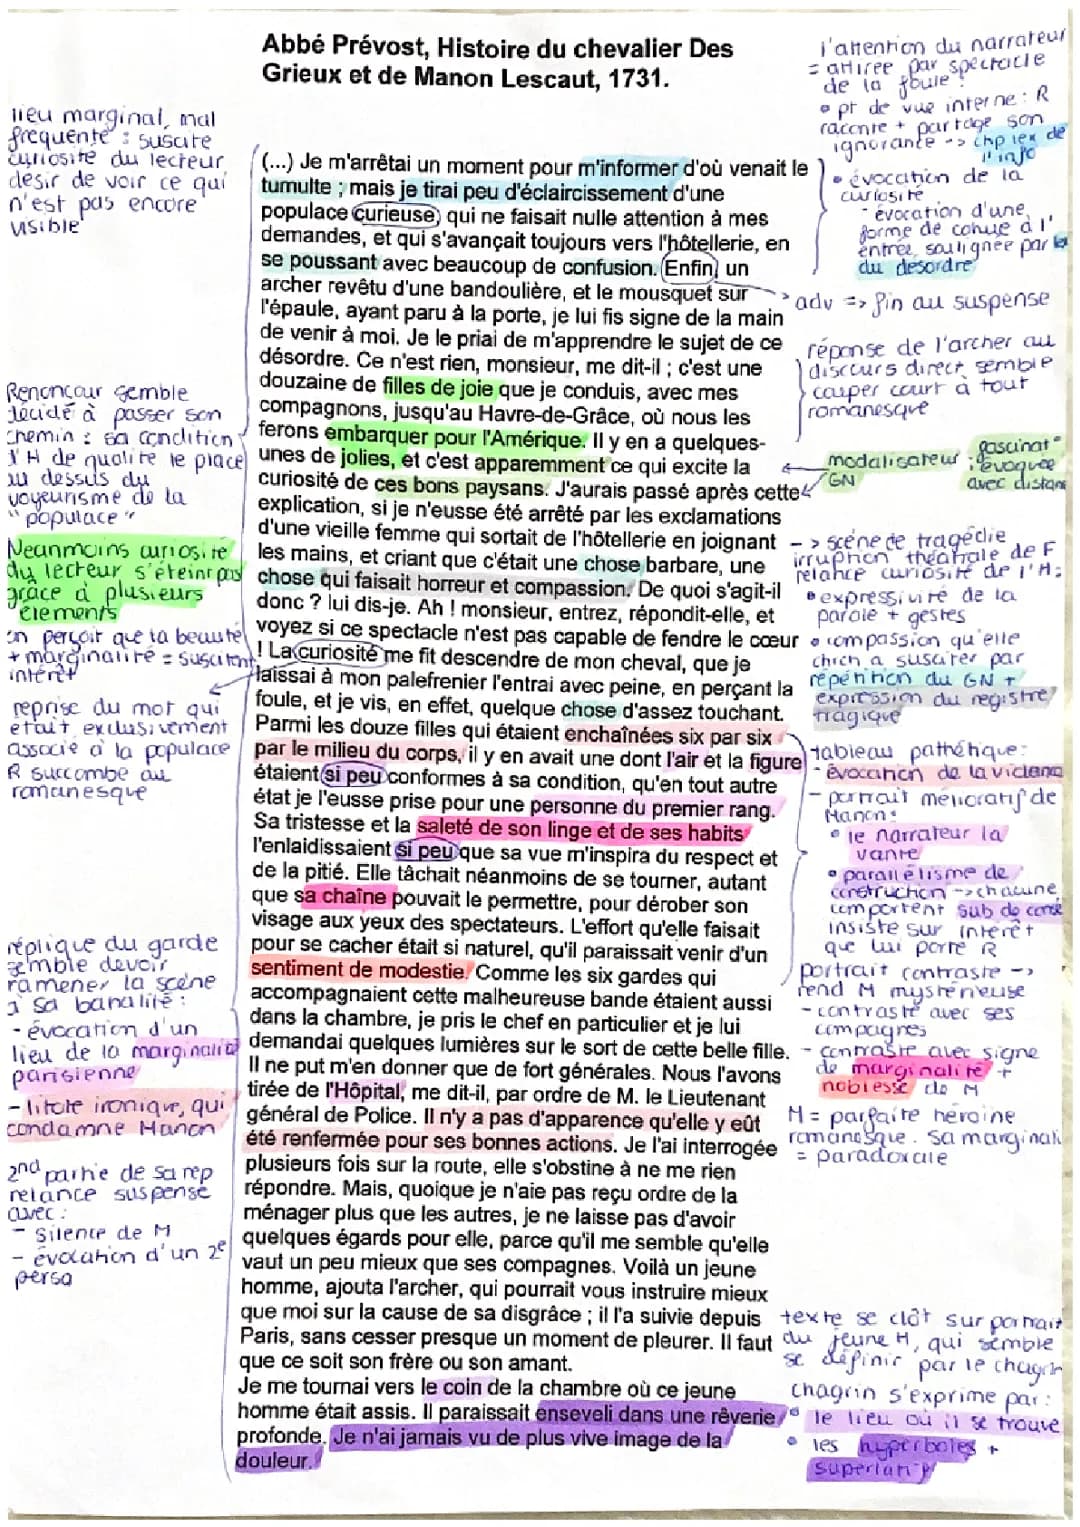 Abbé Prévost, Histoire du chevalier Des
Grieux et de Manon Lescaut, 1731.
lieu marginal, mal
fréquenté : suscite
curiosité du lecteur
désir de voir ce qui
n'est pas encore
visible
l'attention du narrateur
= attirée par spectacle
de la foule :
• pt de vue interne : R
raconte + partage son
ignorance -> chp lex de
l'info
• évocation de la
curiosité
- évocation d'une
forme de cohue à l'
entrée, soulignée par
du désordre
(...) Je m'arrêtai un moment pour m'informer d'où venait le
tumulte ; mais je tirai peu d'éclaircissement d'une
populace curieuse, qui ne faisait nulle attention à mes
demandes, et qui s'avançait toujours vers l'hôtellerie, en
se poussant avec beaucoup de confusion. Enfin, un
archer revêtu d'une bandoulière, et le mousquet sur
l'épaule, ayant paru à la porte, je lui fis signe de la main
de venir à moi. Je le priai de m'apprendre le sujet de ce
désordre. Ce n'est rien, monsieur, me dit-il ; c'est une
douzaine de filles de joie que je conduis, avec mes
compagnons, jusqu'au Havre-de-Grâce, où nous les
ferons embarquer pour l'Amérique. Il y en a quelques-
unes de jolies, et c'est apparemment ce qui excite la
curiosité de ces bons paysans. J'aurais passé après cette
explication, si je n'eusse été arrêté par les exclamations
d'une vieille femme qui sortait de l'hôtellerie en joignant
les mains, et criant que c'était une chose barbare, une
chose qui faisait horreur et compassion. De quoi s'agit-il
donc ? lui dis-je. Ah ! monsieur, entrez, répondit-elle, et
voyez si ce spectacle n'est pas capable de fendre le cœur
! La curiosité me fit descendre de mon cheval, que je
laissai à mon palefrenier l'entrai avec peine, en perçant la
foule, et je vis, en effet, quelque chose d'assez touchant.
Parmi les douze filles qui étaient enchaînées six par six
par le milieu du corps, il y en avait une dont l'air et la figure
étaient si peu conformes à sa condition, qu'en tout autre
état je l'eusse prise pour une personne du premier rang.
Sa tristesse et la saleté de son linge et de ses habits
l'enlaidissaient si peu que sa vue m'inspira du respect et
de la pitié. Elle tâchait néanmoins de se tourner, autant
que sa chaîne pouvait le permettre, pour dérober son
visage aux yeux des spectateurs. L'effort qu'elle faisait
pour se cacher était si naturel, qu'il paraissait venir d'un
sentiment de modestie. Comme les six gardes qui
accompagnaient cette malheureuse bande étaient aussi
dans la chambre, je pris le chef en particulier et je lui
demandai quelques lumières sur le sort de cette belle fille.
Il ne put m'en donner que de fort générales. Nous l'avons
tirée de l'Hôpital, me dit-il, par ordre de M. le Lieutenant
général de Police. Il n'y a pas d'apparence qu'elle y eût
été renfermée pour ses bonnes actions. Je l'ai interrogée
plusieurs fois sur la route, elle s'obstine à ne me rien
répondre. Mais, quoique je n'aie pas reçu ordre de la
ménager plus que les autres, je ne laisse pas d'avoir
quelques égards pour elle, parce qu'il me semble qu'elle
vaut un peu mieux que ses compagnes. Voilà un jeune
homme, ajouta l'archer, qui pourrait vous instruire mieux
que moi sur la cause de sa disgrâce ; il l'a suivie depuis
Paris, sans cesser presque un moment de pleurer. Il faut
que ce soit son frère ou son amant.
Je me tournai vers le coin de la chambre où ce jeune
homme était assis. Il paraissait enseveli dans une rêverie
profonde. Je n'ai jamais vu de plus vive image de la
douleur.
adv => fin au suspense
réponse de l'archer au
discours direct, semble
couper court à tout
romanesque
modalisateur : fascinat°
GN évoquée
avec distan
-> scène de tragédie
irruption théâtrale de F
relance curiosité de l'H :
• expressivité de la
parole + gestes
• compassion qu'elle
chch à susciter par
répétition du GN +
expression du registre
tragique
tableau pathétique :
- évocation de la violence
- portrait mélioratif de
Manon :
• le narrateur la
vante
• parallélisme de
construction -> chacune
comportent sub de cons
insiste sur intérêt
que lui porte R
portrait contraste ->
rend M mystérieuse
- contraste avec ses
compagnes
- contraste avec signe
de marginalité +
noblesse de M
M = parfaite héroïne
romanesque. sa marginali
= paradoxale
texte se clôt sur portrait
du jeune H, qui semble
se définir par le chagrin
chagrin s'exprime par :
• le lieu où il se trouve
• les hyperboles +
superlatif
Renoncour semble
décidé à passer son
chemin : sa condition
d'H de qualité le place
au dessus du
voyeurisme de la
"populace"
Néanmoins curiosité
du lecteur s'éteint pas
grâce à plusieurs
éléments
on perçoit que la beauté
+ marginalité = suscitent
intérêt
reprise du mot qui
était exclusivement
associé à la populace
R succombe au
romanesque
réplique du garde
semble devoir
ramener la scène
à sa banalité :
- évocation d'un
lieu de la marginalité
parisienne
- litote ironique, qui
condamne Manon
2nd partie de sa rep
relance suspense
avec :
- silence de M
- évocation d'un 2e
perso